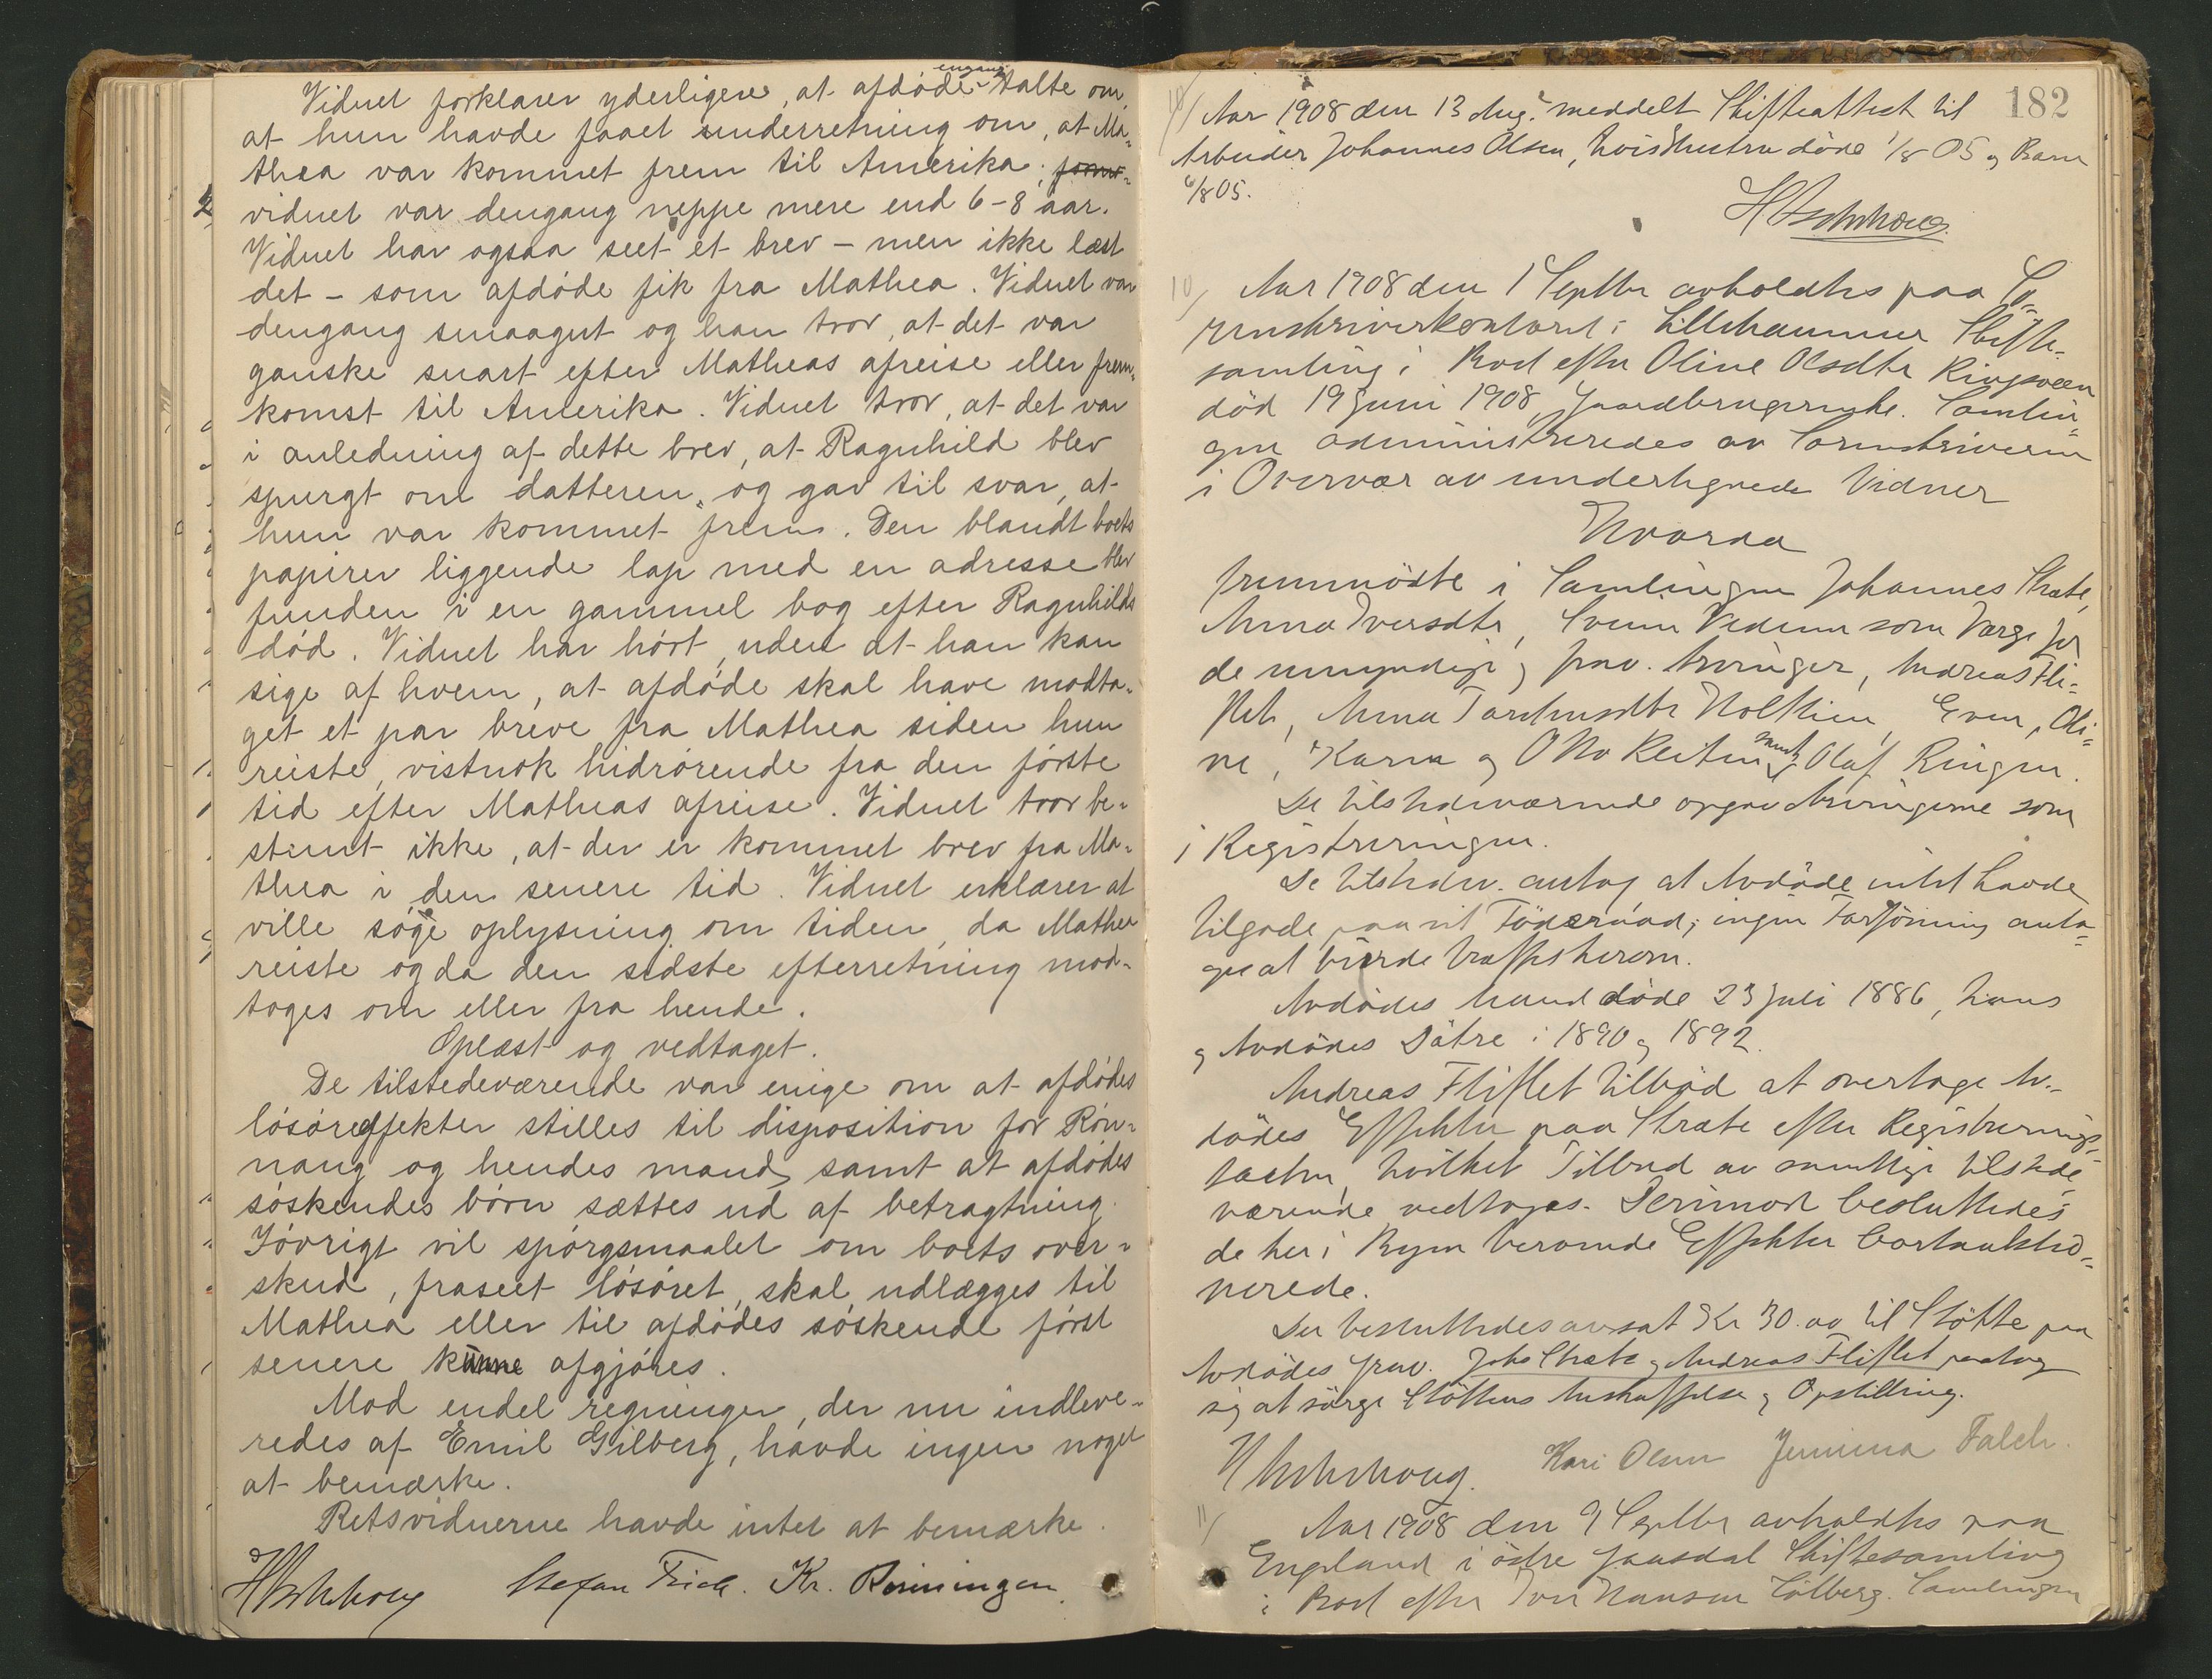 Vidnet forklarer yderligere, at afdøde engang talte om,
at hun havde faaet underretning om, at Ma-
thea var kommet frem til Amerika;
vidnet var dengang neppe mere end 6-8 aar.
Vidnet har ogsaa seet et brev - men ikke læst
det - som afdøde fik fra Mathea. Vidnet var
dengang smaagut og han tror, at det var
ganske snart efter Matheas afreise eller frem-
komst til Amerika. Vidnet tror, at det var
i anledning af dette brev, at Ragnhild blev
spurgt om datteren, og gav til svar, at
hun var kommet frem. Den blandt boets
papirer liggende lap med en adresse blev
funden i en gammel bog efter Ragnhilds
død. Vidnet har hørt, uden at han kan
sige af hvem, at afdøde skal have modta-
get et par breve fra Mathea siden hun
reiste, vistnok hidrørende fra den første
tid efter Matheas afreise. Vidnet tror be-
stemt ikke, at der er kommet brev fra Ma-
thea i den senere tid. Vidnet erklærer at
ville søge oplysning om tiden, da Mathea
reiste og da den sidste efterretning mod-
toges om eller fra hende.
Oplæst og vedtaget.
De tilstedeværende var enige om at afdødes
løsøreeffekter stilles til disposition for Røn-
naug og hendes mand, samt at afdødes
søskendes børn sættes ud af betragtning.
Iøvrigt vil spørgsmaalet om boets over-
skud, fraseet løsøret, skal udlægges til
Mathea eller til afdødes søskende først
senere kunne afgjøres.
Mod endel regninger, der nu indleve-
redes af Emil Gilberg, havde ingen noget
at bemærke.
Retsvidnerne havde intet at bemærke.
Stefan Kr. Rønningen
182
Aar 1908 den 13 Aug. meddelt Skifteattest til
Arbeider Johannes Olsen, hvis Hustru døde 1/8 05 og Barn
6/8 05.
10/ Aar 1908 den 1 Septbr avholdtes paa So-
renskriverkontoret i Lillehammer Skifte-
samling i Bod efter Oline Olsdtr Ringsveen
død 19 Juni 1908, Gaardbrugerenke. Samlin-
gen administreredes av Sorenskriveren
i Overvær av undertegnede Vidner
Hvorda
fremmødte i Samlingen Johannes Stræte,
Anna Iversdtr, Svenn Vedum som Værge for
de umyndige og frav. Arvinger, Andreas Fli-
flet, Anna Torstensdtr Holthien, Even, Oli-
ne, Karen og Otto samt Olaf Ringen.
De tilstedeværende opgav Arvingerne som
i Registreringen.
De tilstedev. antog at Avdøde intet havde
tilgode paa sit Føderaad; ingen Forføining anta-
ges at burde træffes herom.
Avdødes Mand døde 23 Juli 1886, hans
og Avdødes Døtre i 1890 og 1892.
Andreas Fliflet tilbød at overtage Av-
dødes Effekter paa Stræte efter Registrerings-
taxten, hvilket Tilbud av samtlige tilstede-
værende vedtoges. Derimod besluttedes
de her i Byen beroende Effekter bortauktio-
nerede.
Der besluttedes avsat Kr 30.00 til Støtte paa
Avdødes Grav. Johs Stræte og Andreas Fliflet paatog
sig at sørge Støttens Anskaffelse og Opstilling.
Kari Olsen Jemima Falch.
11/ Aar 1908 den 9 Septbr avholdtes paa
Engeland i østre Gausdal Skiftesamling
i Bod efter Iver Hansen Solberg. Samlingen